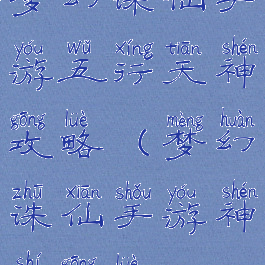 梦幻诛仙手
yóu wǔ xíng tiān shén
游五行天神
gōng lüè mèng huàn
攻略(梦幻
zhū xiān shǒu yóu shén
诛仙手游神
shí gōng lüè